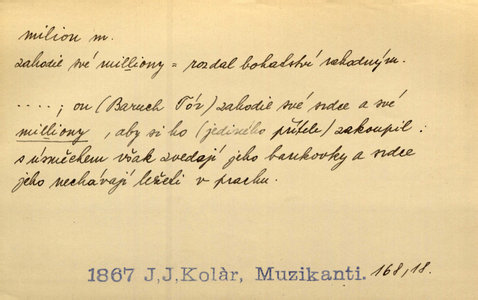 milion m.
zahodil své milliony = rozdal bohatství nahodným.
....; on (Baruch Tóv) zahodil své srdce a své
milliony, aby si ho (jediného přítele) zakoupil:
s úsměchem však zvedají jeho bankovky a srdce
jeho nechávají ležeti v prachu.
1867 J,J,Kolàr, Muzikanti. 168,18.